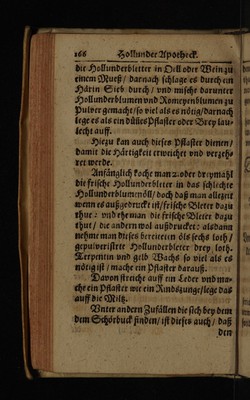 166 Hollunder Apotheck.
die Hollunderbletter in Oell oder Wein zu
einem Murß / darnach schlage es durch ein
Härin Sieb durch / und mische darunter
Hollunderblumen und Romeyenblumen zu
Pulver gemacht / so viel als es nötig / darnach
lege es als ein dülles Pflaster oder Brey lau-
lecht auff.
Hiezu kan auch dieses Pflaster dienen /
damit die Härtigkeit erweichet und verzeh-
ret werde.
Anfänglich koche man 2. oder dreymahl
die frische Hollunderbletter in das schlechte
Hollunderblumenöll / doch daß man allezeit
wenn es außgedruckt ist / frische Bleter dazu
thue: und ehe man die frische Bleter dazu
thut / die andern wol außdrucket: als dann
nehme man dieses bereiteten öls sechs loth /
gepulverisirte Hollunderbletter drey loth.
Terpentin und gelb Wachs so viel als es
nötig ist / mache ein Pflaster darauß.
Davon streiche auff ein Leder und ma-
che ein Pflaster wie ein Rindszunge / lege das
auff die Miltz.
Unter andern Zufällen die sich bey dem
dem Schörbuck finden / ist dieses auch / daß
den